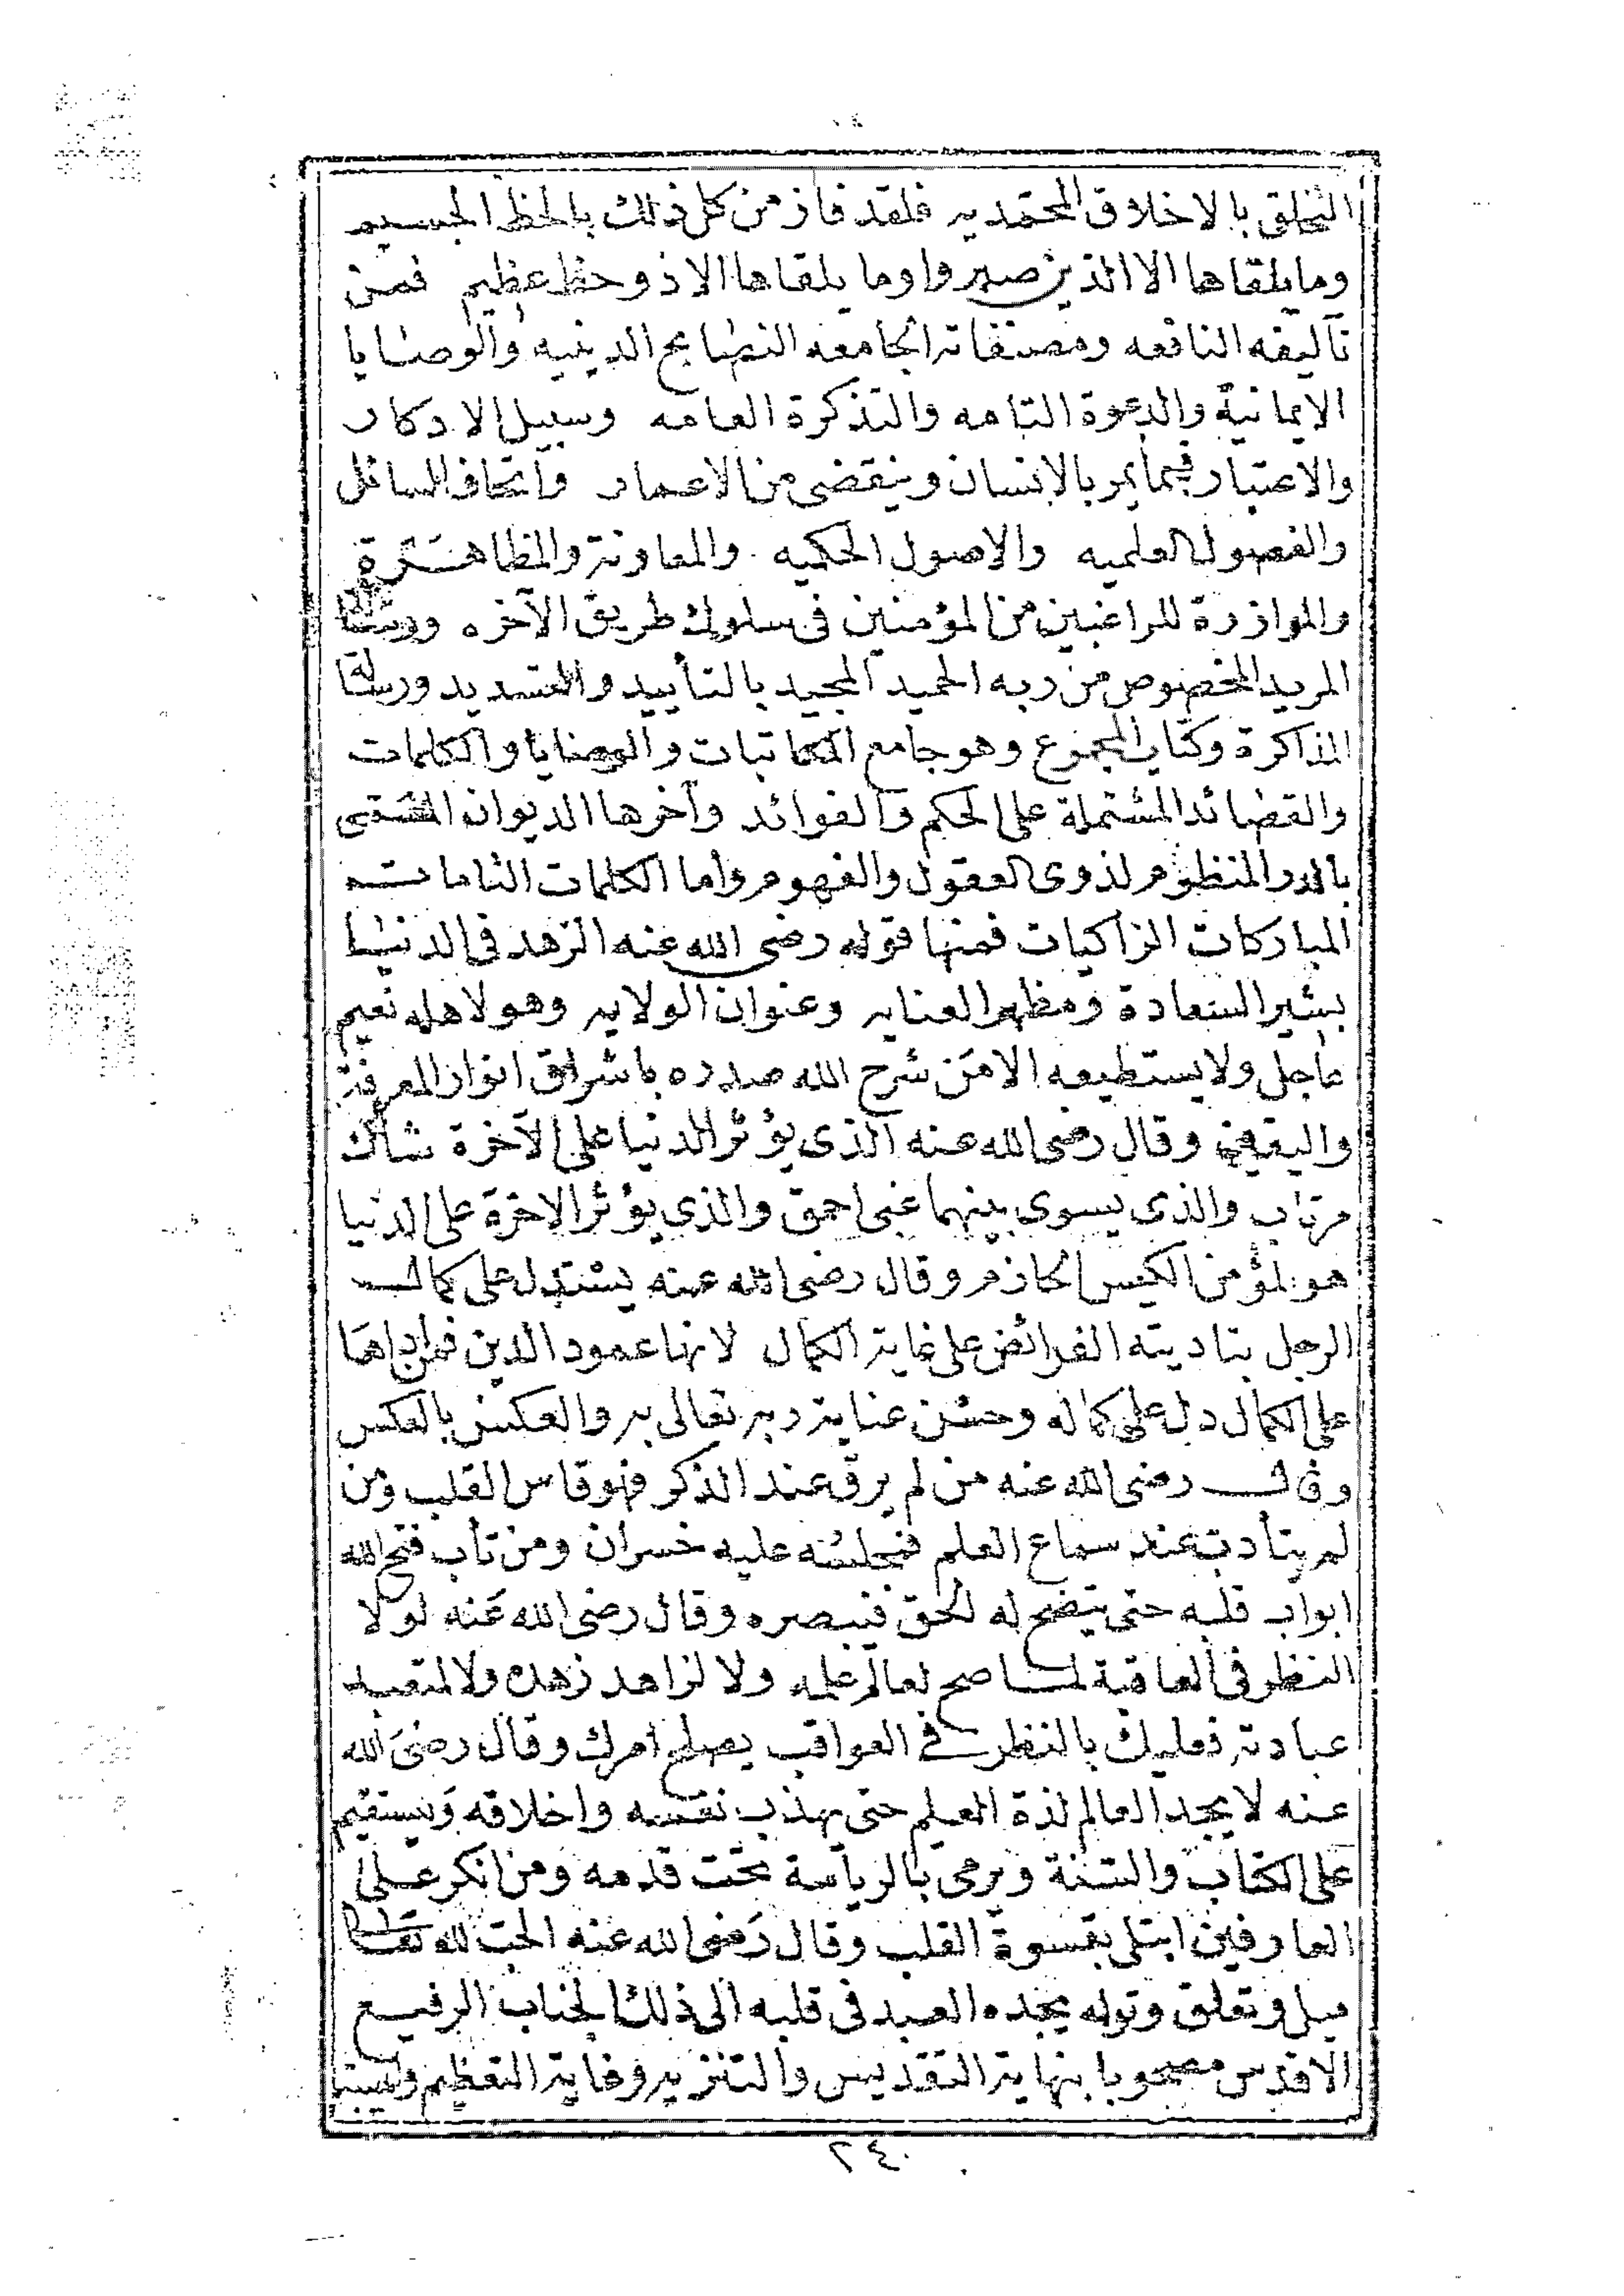 التخلق بالاخلاق المحمديه فلقد فاز من كل ذلك بالحظ الجسيم
وما يلقاها الا الذين صبروا وما يلقاها الا ذو حظ عظيم فمن
تآليفه النافعه ومصنفاته الجامعه النصايح الدينيه والوصايا
الايمانية والدعوة التامه والتذكرة العامه وسبيل الادكار
والاعتبار فيما يمر بالانسان وينقضى من الاعمار واتحاف السائل
والفصول العلميه والاصول الحكميه والمعاونة والمظاهرة
والموازرة للراغبين من المؤمنين فى سلوك طريق الآخره ورسالة
المريد المخصوص من ربه الحميد المجيد بالتأييد والتسديد ورسالة
المذاكرة وكتاب المجموع وهو جامع المكاتبات والوصايا والكلمات
والقصائد المشتملة على الحكم والفوائد وآخرها الديوان المسمى
بالدر المنظوم لذوى العقول والفهوم وأما الكلمات التامات
المباركات الزاكيات فمنها قوله رضى الله عنه الزهد فى الدنيا
بشير السعادة ومظهر العنايه وعنوان الولايه وهو لاهله نعيم
عاجل ولا يستطيعه الا من شرح الله صدره باشراق انوار المعرفة
واليقين وقال رضى الله عنه الذى يؤثر الدنيا على الآخرة شاك
مرتاب والذى يسوى بينهما غبى احمق والذي يؤثر الاخرة على الدنيا
هو المؤمن الكيس الحازم وقال رضى الله عنه يستدل على كمال
الرجل بتاديته الفرائض على غاية الكمال لانها عمود الدين فمن اداها
على الكمال دل على كماله وحسن عناية ربه تعالى به والعكس بالعكس
وقال رضى الله عنه من لم يرق عند الذكر فهو قاس القلب ومن
لم يتأدب عند سماع العلم فمجلسه عليه خسران ومن تأب فتح الله
ابواب قلبه حتى يتضح له الحق فيبصره وقال رضى الله عنه لولا
النظر فى العاقبة لما صح لعالم علمه ولا لزاهد زهده ولا لمتعبد
عبادته فعليك بالنظر في العواقب يصلح امرك وقال رضى الله
عنه لا يجد العالم لذة العلم حتى يهذب نفسه واخلاقه ويستقيم
على الكتاب والسنة ويرمى بالرياسة تحت قدمه ومن انكر على
العارفين ابتلى بقسوة القلب وقال رضى الله عنه الحب لله تعالى
ميل وتعلق وتوله يجده العبد فى قلبه الى ذلك الجناب الرفيع
الاقدس مصحوبا بنهاية التقديس والتنزيه وغاية التعظيم والهيبة
٢٤٠